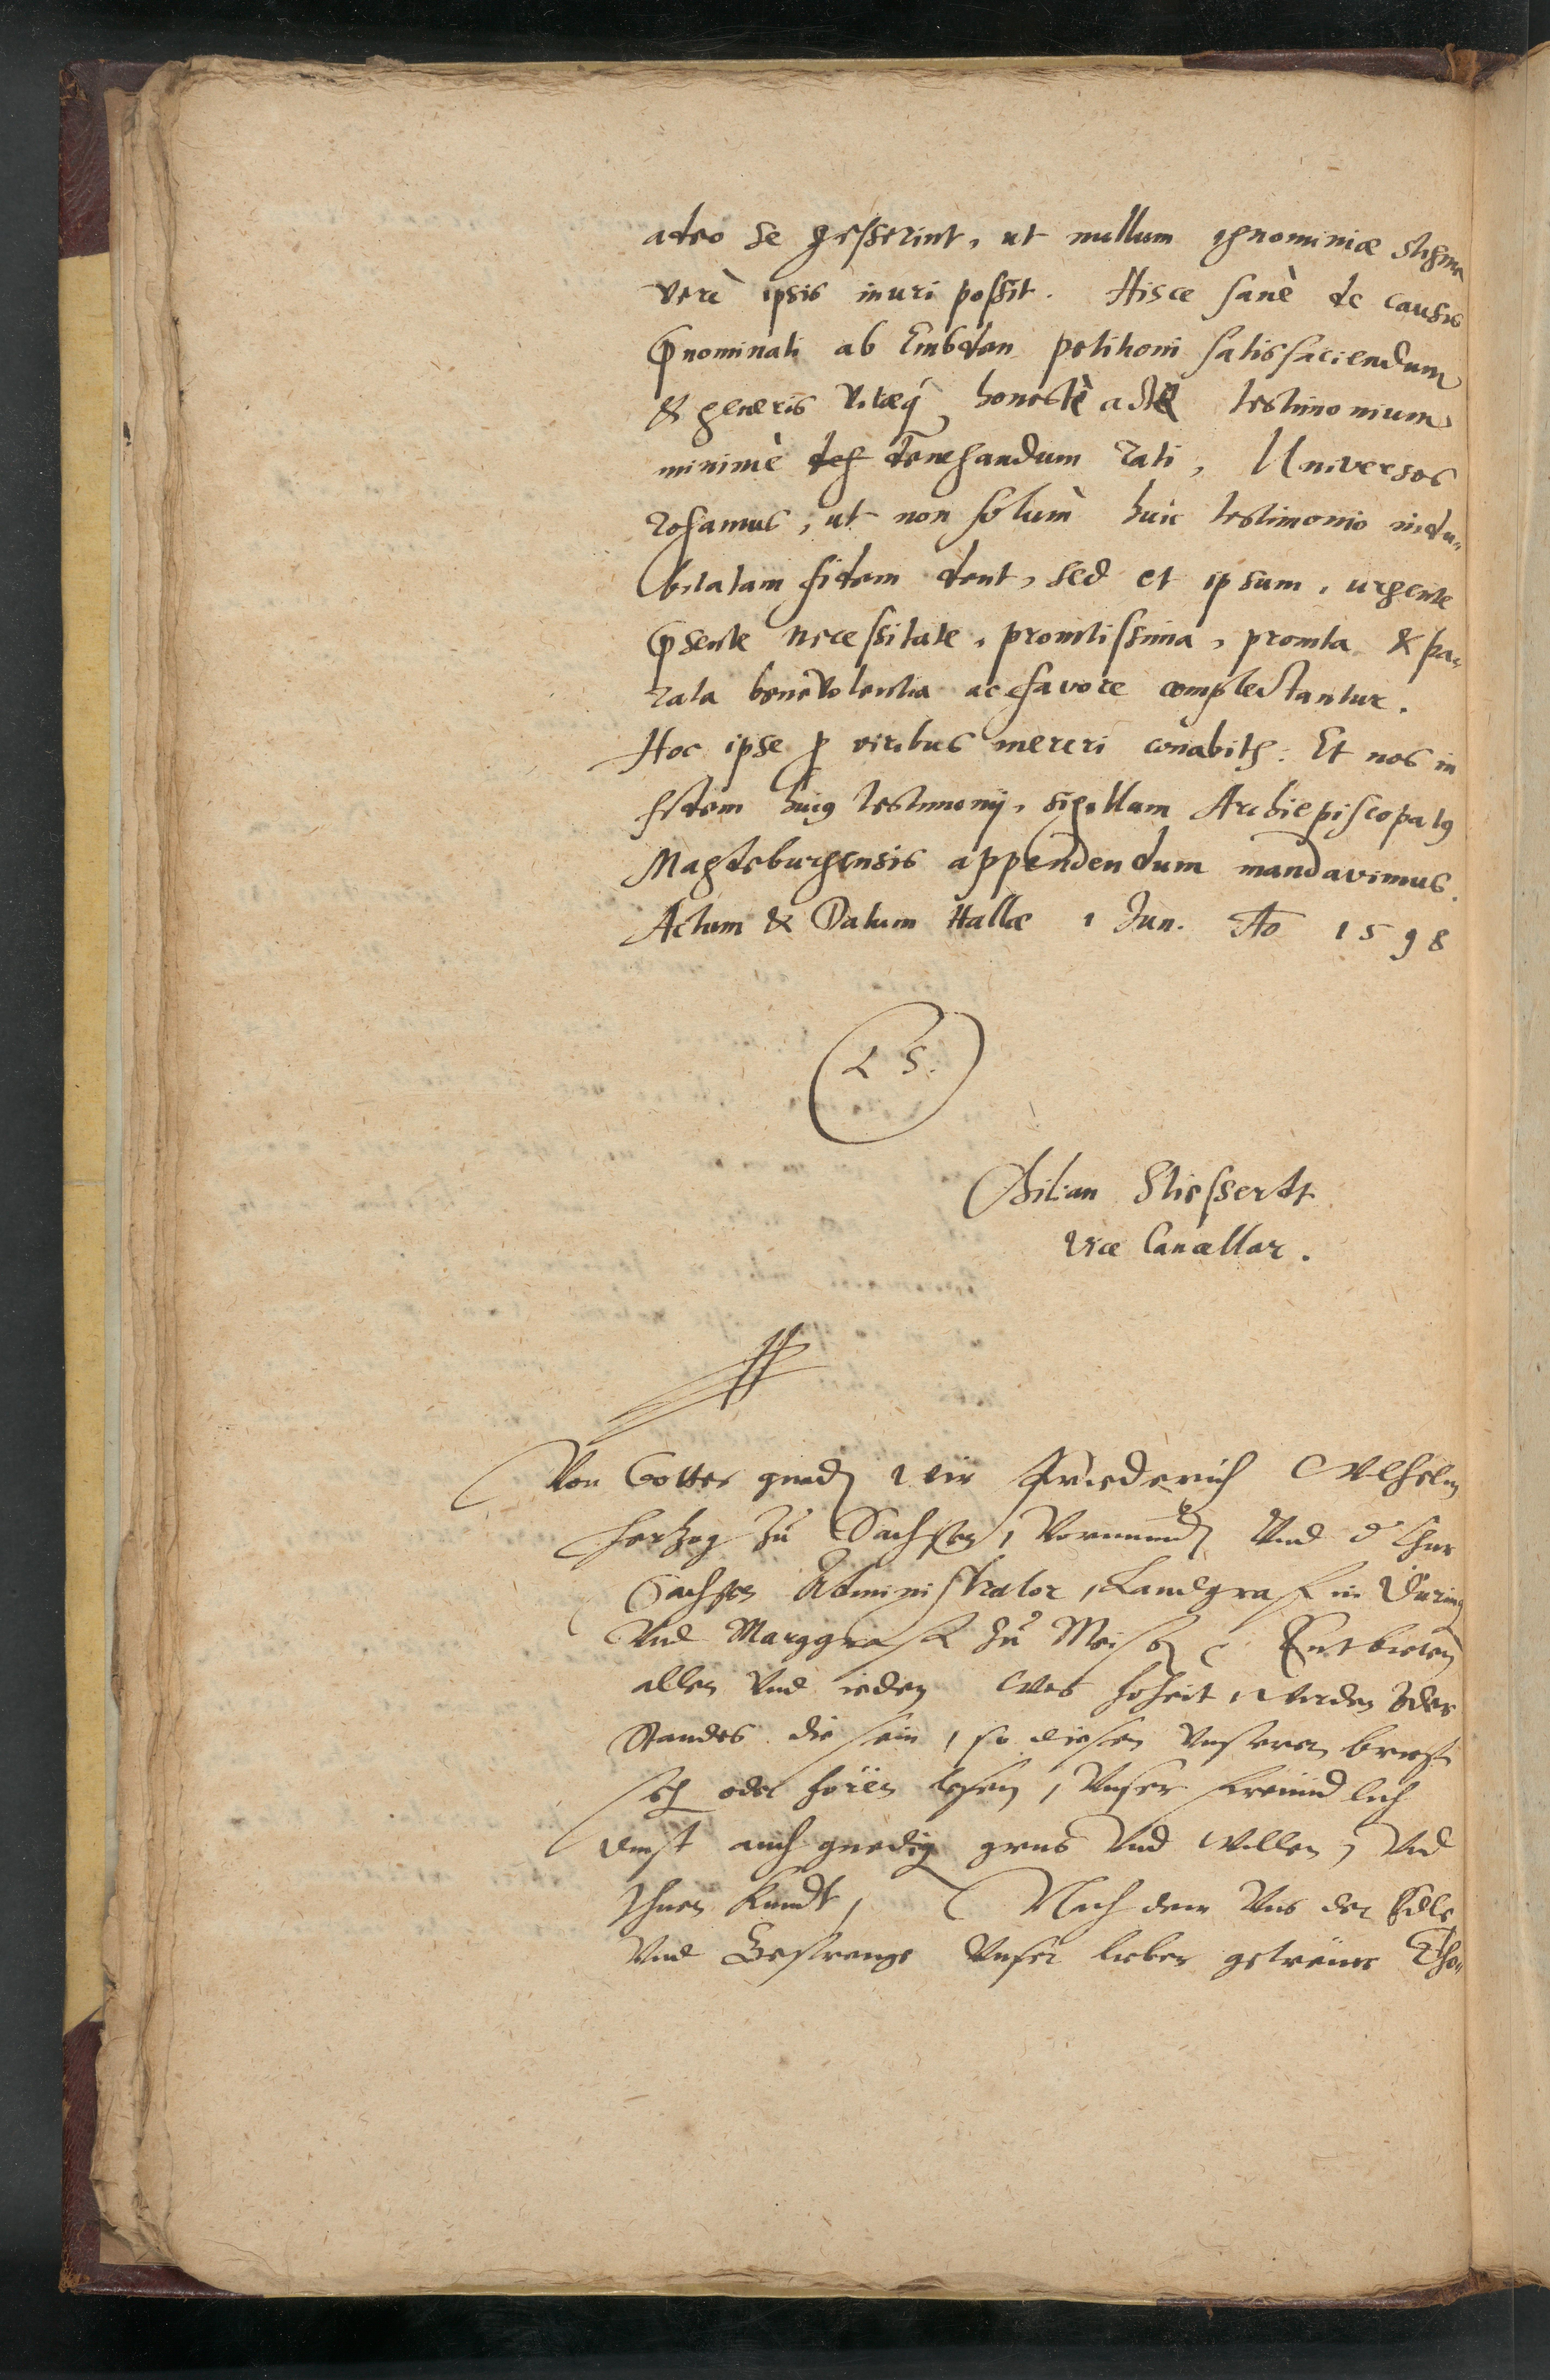 adeo se gesserint, ut nullum ignominiæ stigma
verè ipsis inuri possit. Hisce sanè de causis
p̄nominati ab Embden petitioni satisfaciendum
& generis vitæq́ honestè actæ testimonium
minimè deg denegandum rati, Universos
rogamus, ut non solùm huic testimonio indu„
bitatam fidem dent, sed et ipsum, urgente
p̄sente necessitate, promtissima, promta & pa„
rata benevolentia ac favore complectantur.
Hoc ipse ꝓ viribus mereri conabitꝭ. Et nos in
fidem huiꝰ testimonij, sigillum Archiepiscopatꝰ
Magdeburgensis appendendum mandavimus.
Actum & Datum Hallæ 1 Jun. Ao 1598
L S.
Kilian Stiessertt
Vice Cancellar.
Von Gottes gnadẽ wir Friederich Wilhelm
Hertzog zu Sachsen, Vormundẽ Und d' Chur
Sachsen Administrator, Landgraff in Düring
Und Marggraff zu Meissẽ Entbieten
allen Und ieden Wes hoheit, wirden oder
Standes die sein, so diesen Unseren brieff
sehẽ oder hören lesen, Unser freundlich
dinst auch gnedig grus Und Willen, Und
Ihnen Kundt, Nach dem Uns der Edle
Und Gestrenge Unser lieber getreuer Tho„